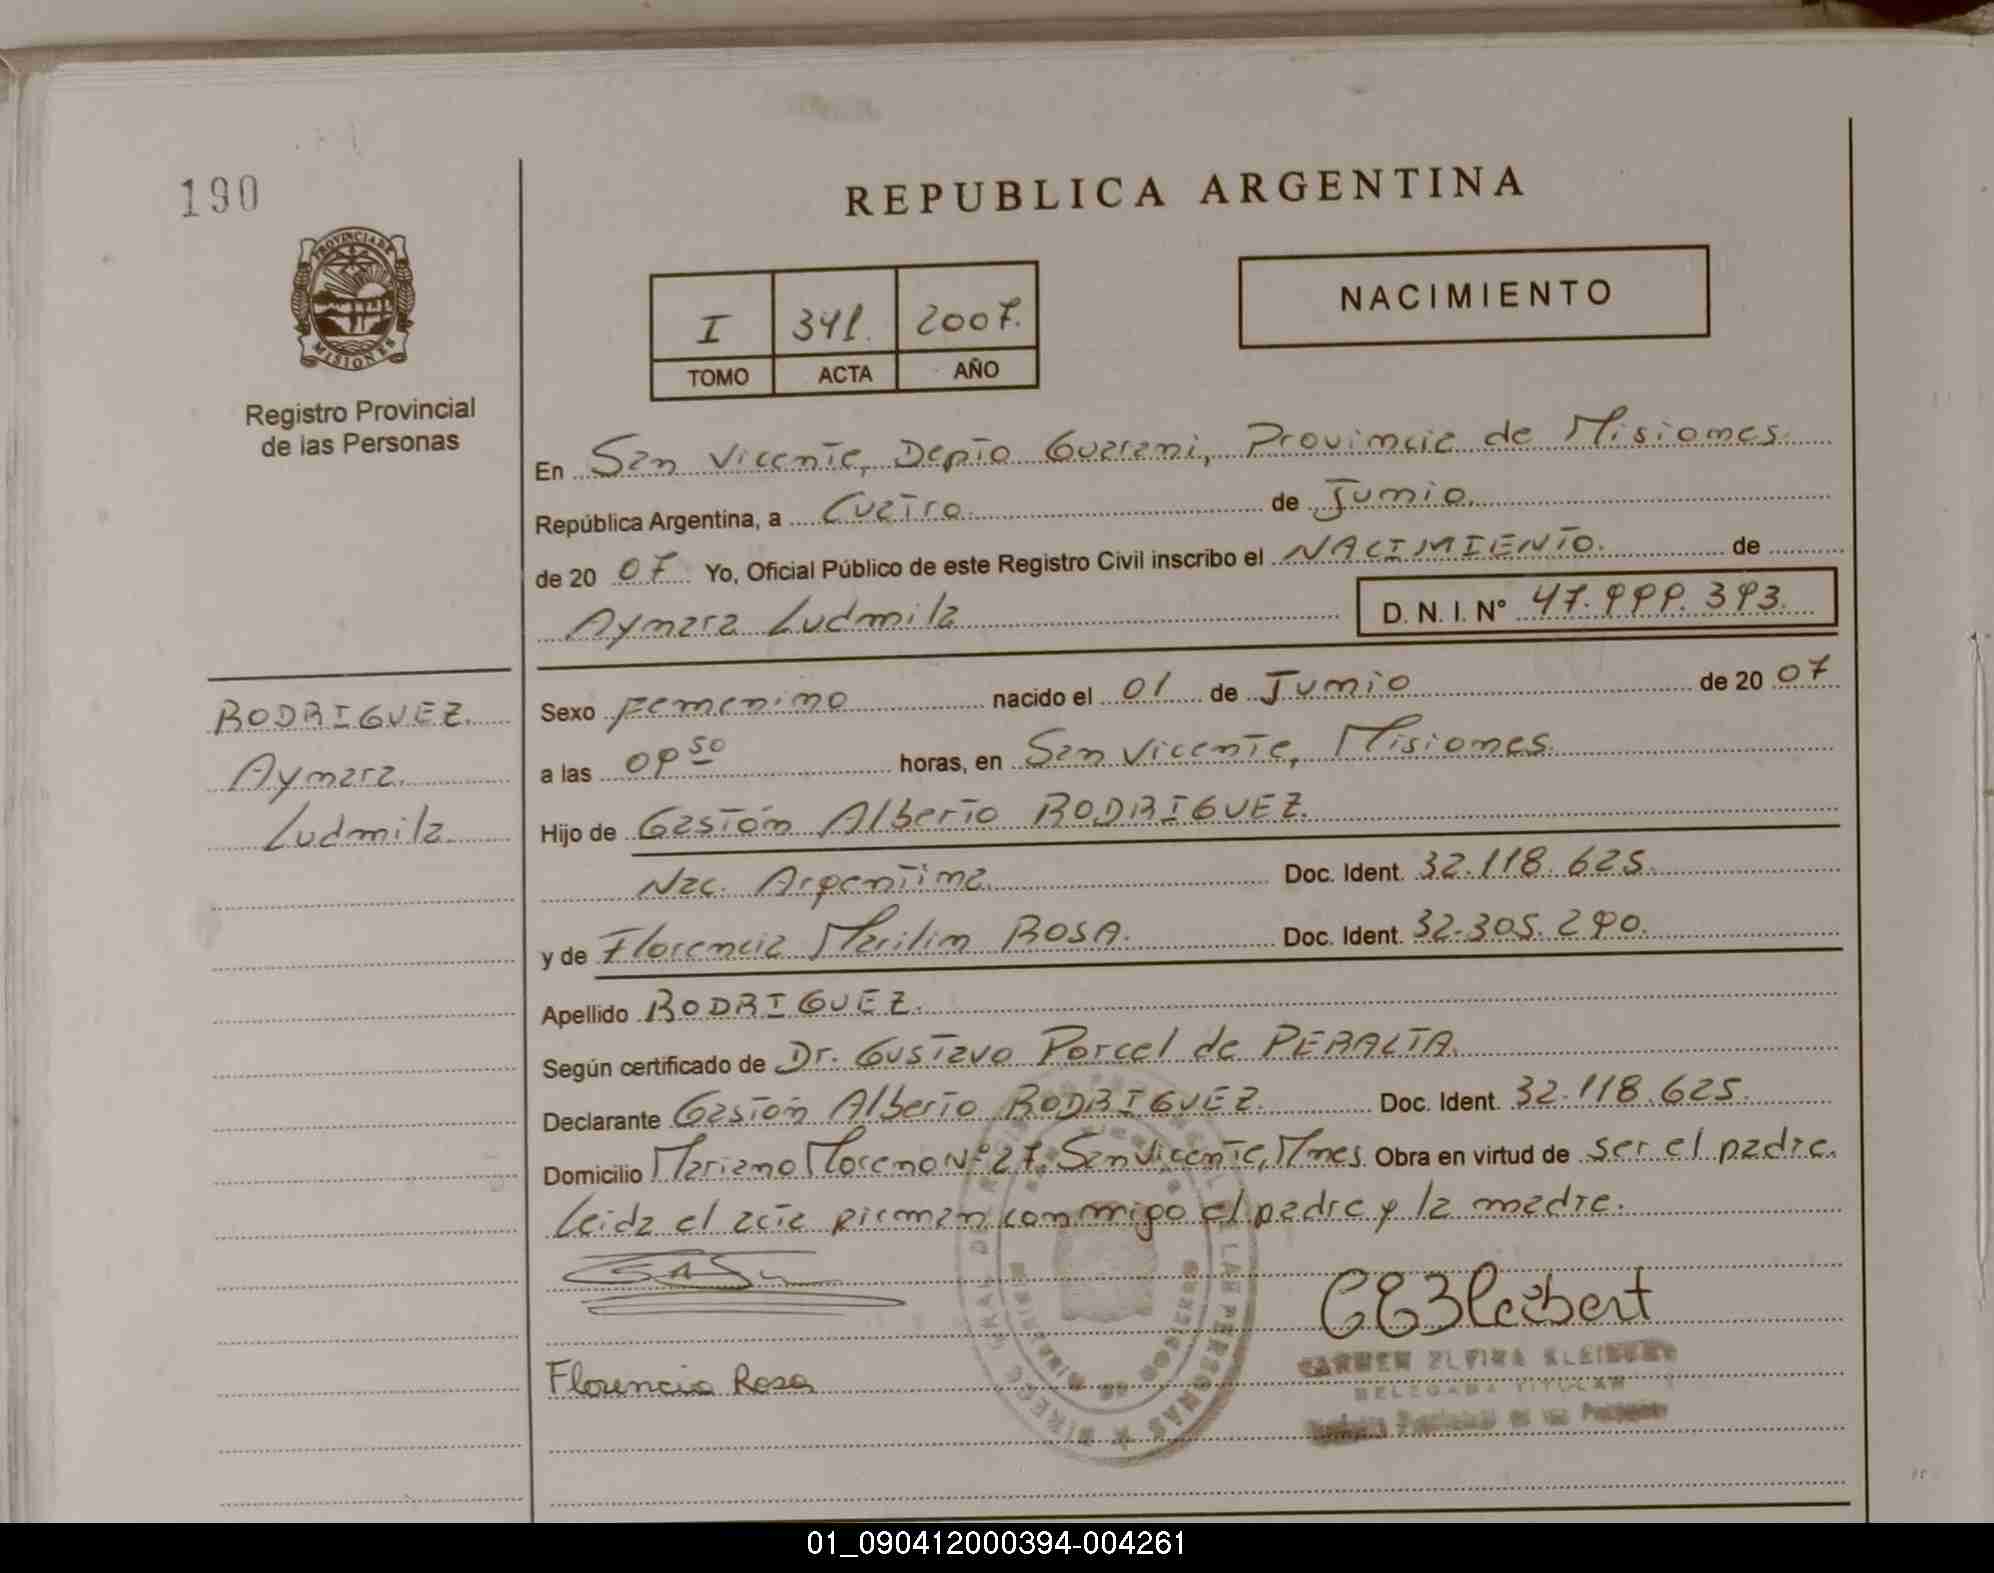 190
REPUBLICA ARGENTINA
PROVINCIA DE
MISIONES
Registro Provincial
de las Personas
I 341. 2007.
TOMO ACTA AÑO
NACIMIENTO
En San Vicente, Depto Guarani, Provincia de Misiones.
República Argentina, a Cuatro de Junio
de 20 07 Yo, Oficial Público de este Registro Civil inscribo el NACIMIENTO. de
Aymara Ludmila D. N. I. N° 47.999.393.
RODRIGUEZ
Aymara
Ludmila
Sexo femenino nacido el 01 de Junio de 20 07
a las 09 50 horas, en San Vicente, Misiones.
Hijo de Gastón Alberto RODRIGUEZ.
Nac. Argentina Doc. Ident. 32.118.625.
y de Florencia Marilin ROSA. Doc. Ident. 32.305.290.
Apellido RODRIGUEZ.
Según certificado de Dr. Gustavo Porcel de PERALTA.
Declarante Gastón Alberto RODRIGUEZ. Doc. Ident. 32.118.625.
Domicilio Mariano Moreno Nº 27. San Vicente, Mnes. Obra en virtud de ser el padre.
Leida el acta firman conmigo el padre y la madre.
Florencia Rosa
CARMEN ELVIRA KLEIBERT
DELEGADA TITULAR
01_090412000394-004261